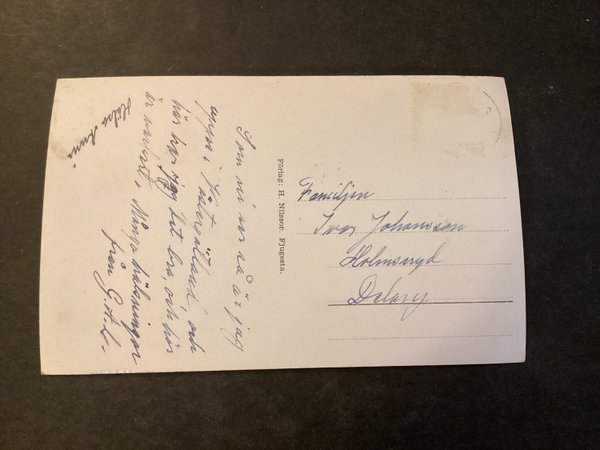 Som ni ser så är jag
uppe i Västergötland, och
här har jag det bra, och här
är vackert. Många hälsningar
från G.A.L.
Hälsa Anni
Förlag: H. Nilsson, Fjugesta.
Familjen
Ivar Johansson
Holmsryd
Delary